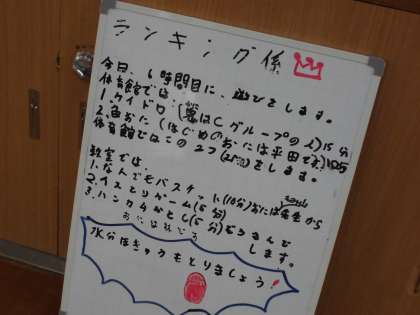 ランキング係
今日、6時間目に、遊びをします。
体育館では、
1.ケイドロ(はCグループの人)15分
2.色おに(はじめのおには平田です)
体育館ではこの2つをします。
教室では、
1.なんでもバスケット(10分)おには先生から
2.イスとりゲーム(5分)
3.ハンカチおとし(5分)
します。
水分はきっちもとりましょう!